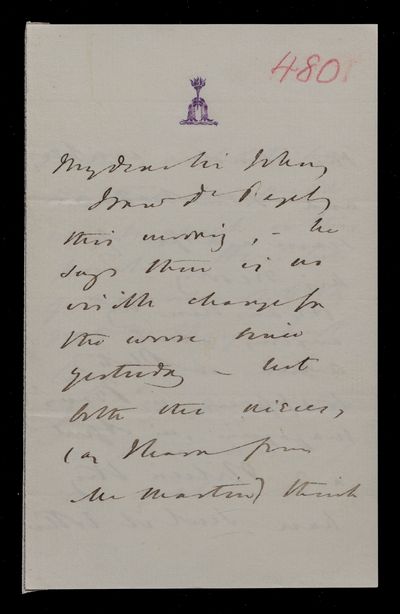 480
My dear Sir John,
I saw Dr Bayly
this morning, – he
says there is no
visible change for
the worse since
yesterday – but
both the nieces,
(as I learn from
Mr Martin) think